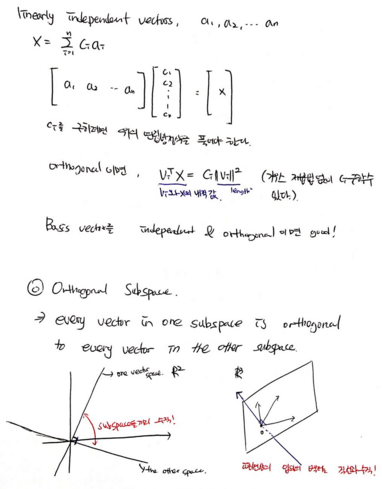 linearly independent vectors, a₁, a₂, ... an
X = Σ(i=1 to n) Ci ai
[a₁ a₂ ... an] [C₁ C₂ ⋮ Cn] = [x]
Ci를 구하려면 위의 연립방정식을 풀어야 한다.
orthogonal 이면, ViᵀX = Ci||Vi||² (가우스 소거법 없이 Ci 구할수 있다.)
Vi와 x의 내적 값. length
Basis vector를 independent & orthogonal 이면 good!
⑥ Orthogonal Subspace.
→ every vector in one subspace is orthogonal
to every vector in the other subspace.
→ one vector space. R²
subspace끼리 수직!
the other space.
R³
평면상의 임의의 벡터는 직선과 수직!